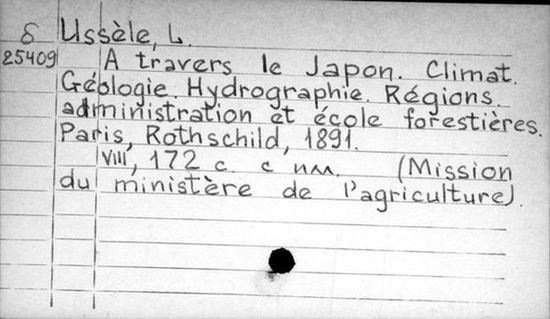 δ Ussèle, L.
25409 A travers le Japon. Climat.
Géologie. Hydrographie. Régions.
administration et école forestières.
Paris, Rothschild, 1891.
VIII, 172 с. с илл. (Mission
du ministère de l'agriculture).